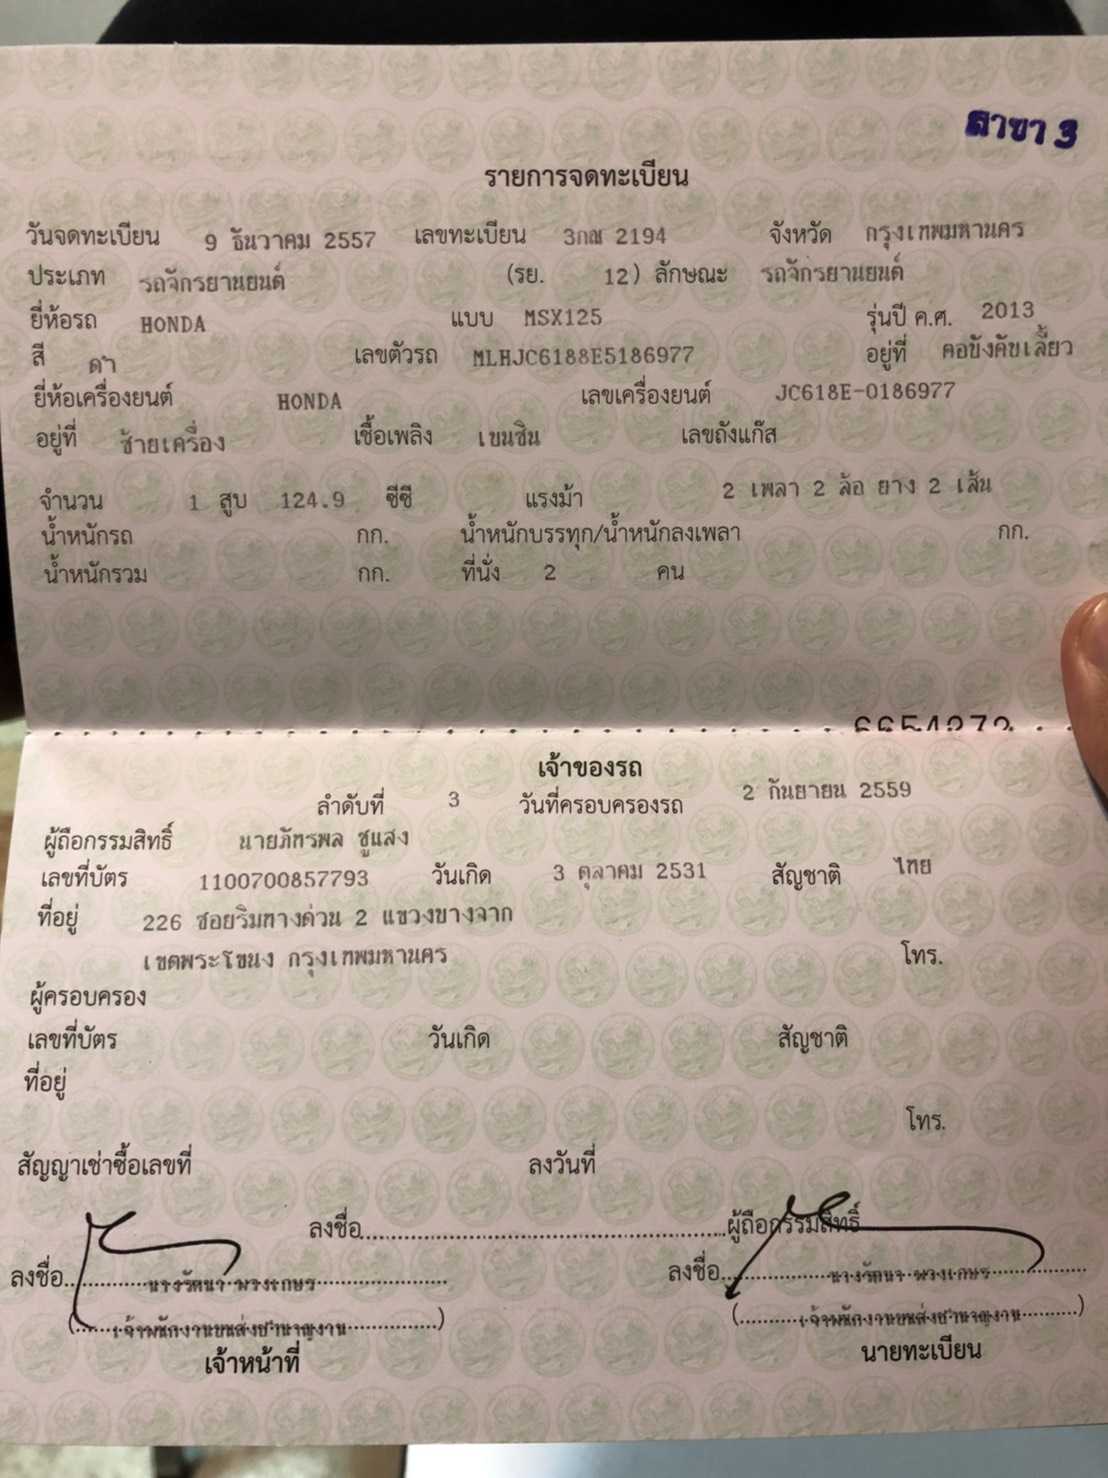 สาขา 3
รายการจดทะเบียน
วันจดทะเบียน 9 ธันวาคม 2557 เลขทะเบียน 3กณ 2194 จังหวัด กรุงเทพมหานคร
ประเภท รถจักรยานยนต์ (รย. 12) ลักษณะ รถจักรยานยนต์
ยี่ห้อรถ HONDA แบบ MSX125 รุ่นปี ค.ศ. 2013
สี ดำ เลขตัวรถ MLHJC6188E5186977 อยู่ที่ คอขังคับเลี้ยว
ยี่ห้อเครื่องยนต์ HONDA เลขเครื่องยนต์ JC618E-0186977
อยู่ที่ ซ้ายเครื่อง เชื้อเพลิง เบนซิน เลขถังแก๊ส
จำนวน 1 สูบ 124.9 ซีซี แรงม้า 2 เพลา 2 ล้อ ยาง 2 เส้น
น้ำหนักรถ กก. น้ำหนักบรรทุก/น้ำหนักลงเพลา กก.
น้ำหนักรวม กก. ที่นั่ง 2 คน
เจ้าของรถ
ลำดับที่ 3 วันที่ครอบครองรถ 2 กันยายน 2559
ผู้ถือกรรมสิทธิ์ นายภัทรพล ชูแสง
เลขที่บัตร 1100700857793 วันเกิด 3 ตุลาคม 2531 สัญชาติ ไทย
ที่อยู่ 226 ซอยริมทางด่วน 2 แขวงบางจาก
เขตพระโขนง กรุงเทพมหานคร โทร.
ผู้ครอบครอง
เลขที่บัตร วันเกิด สัญชาติ
ที่อยู่
โทร.
สัญญาเช่าซื้อเลขที่ ลงวันที่
ลงชื่อ ผู้ถือกรรมสิทธิ์
ลงชื่อ นางรัตนา พวงเกษร ลงชื่อ นางรัตนา พวงเกษร
(เจ้าพนักงานขนส่งชำนาญงาน) (เจ้าพนักงานขนส่งชำนาญงาน)
เจ้าหน้าที่ นายทะเบียน